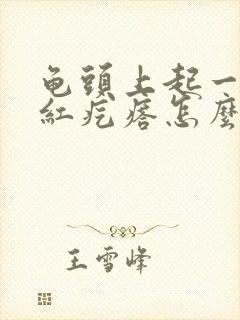 龟頭上起一
紅疙瘩怎麼
王雪峰